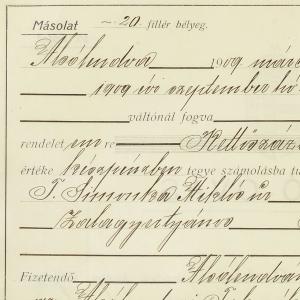 Másolat ~20 fillér bélyeg.
Alsólendva 1909 márc
1909 évi szeptember hó
váltónál fogva
rendelet em re Kettőszáz
értéke készpénzben tegye számolásba
T. Simonka Miklós úr
Zalagyertyános
Fizetendő Alsólendvá
Alsólendvai T